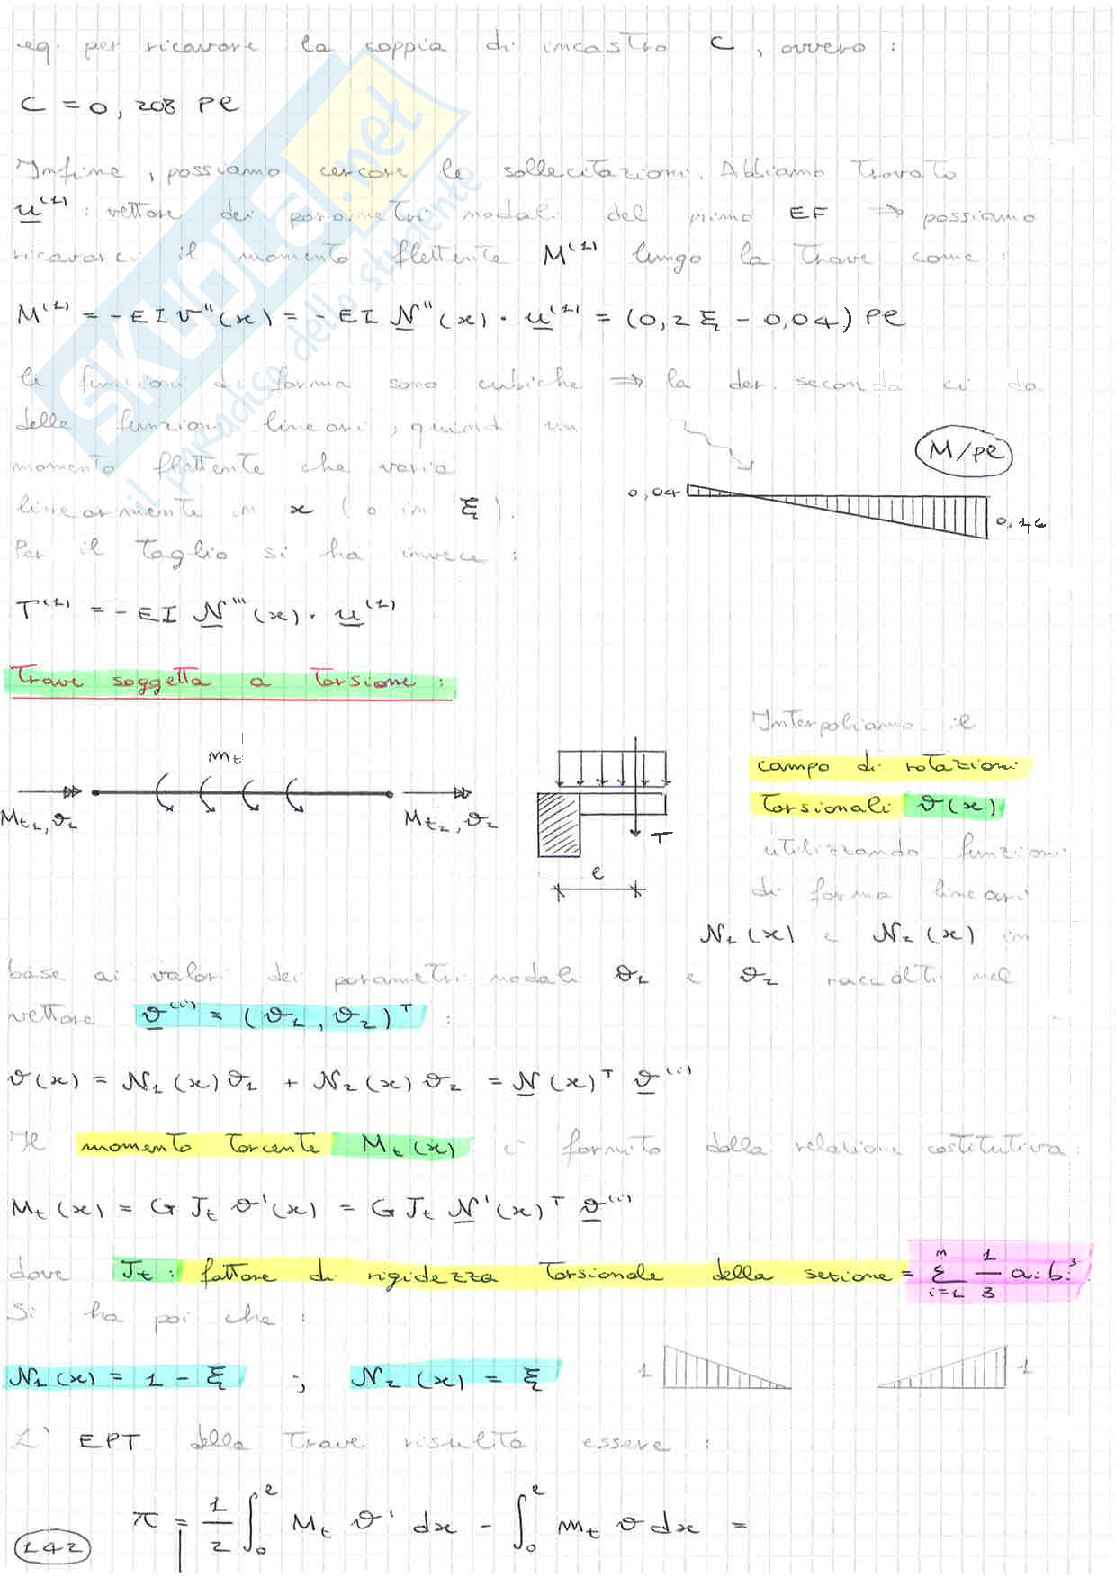 eq. per ricavare la coppia di incastro C, ovvero :
C = 0,208 Pl
Infine, possiamo cercare le sollecitazioni. Abbiamo trovato
u⁽¹⁾ : vettore dei parametri nodali del primo EF ⇒ possiamo
ricavarci il momento flettente M⁽¹⁾ lungo la trave come :
M⁽¹⁾ = -EI v''(x) = -EI N''(x) · u⁽¹⁾ = (0,2 ξ - 0,04) Pl
le funzioni di forma sono cubiche ⇒ la der. seconda ci da
delle funzioni lineari, quindi un
momento flettente che varia
linearmente in x (o in ξ).
M/Pl
0,04
0,16
Per il Taglio si ha invece :
T⁽¹⁾ = -EI N'''(x) · u⁽¹⁾
Trave soggetta a Torsione :
mt
Mt1, ϑ1
Mt2, ϑ2
T
e
Interpoliamo il
campo di rotazioni
torsionali ϑ(x)
utilizzando funzioni
di forma lineari
N1(x) e N2(x) in
base ai valori dei parametri nodali ϑ1 e ϑ2 raccolti nel
vettore ϑ⁽ⁱ⁾ = (ϑ1, ϑ2)ᵀ :
ϑ(x) = N1(x) ϑ1 + N2(x) ϑ2 = N(x)ᵀ ϑ⁽ⁱ⁾
Il momento torcente Mt(x) è fornito dalla relazione costitutiva :
Mt(x) = G Jt ϑ'(x) = G Jt N'(x)ᵀ ϑ⁽ⁱ⁾
dove Jt : fattore di rigidezza Torsionale della sezione = Σ i=1 n 1/3 ai bi³
Si ha poi che :
N1(x) = 1 - ξ ; N2(x) = ξ
1
1
L' EPT della Trave risulta essere :
π = 1/2 ∫₀ˡ Mt ϑ' dx - ∫₀ˡ mt ϑ dx =
142
SKUOLA.net
il paradiso dello studente